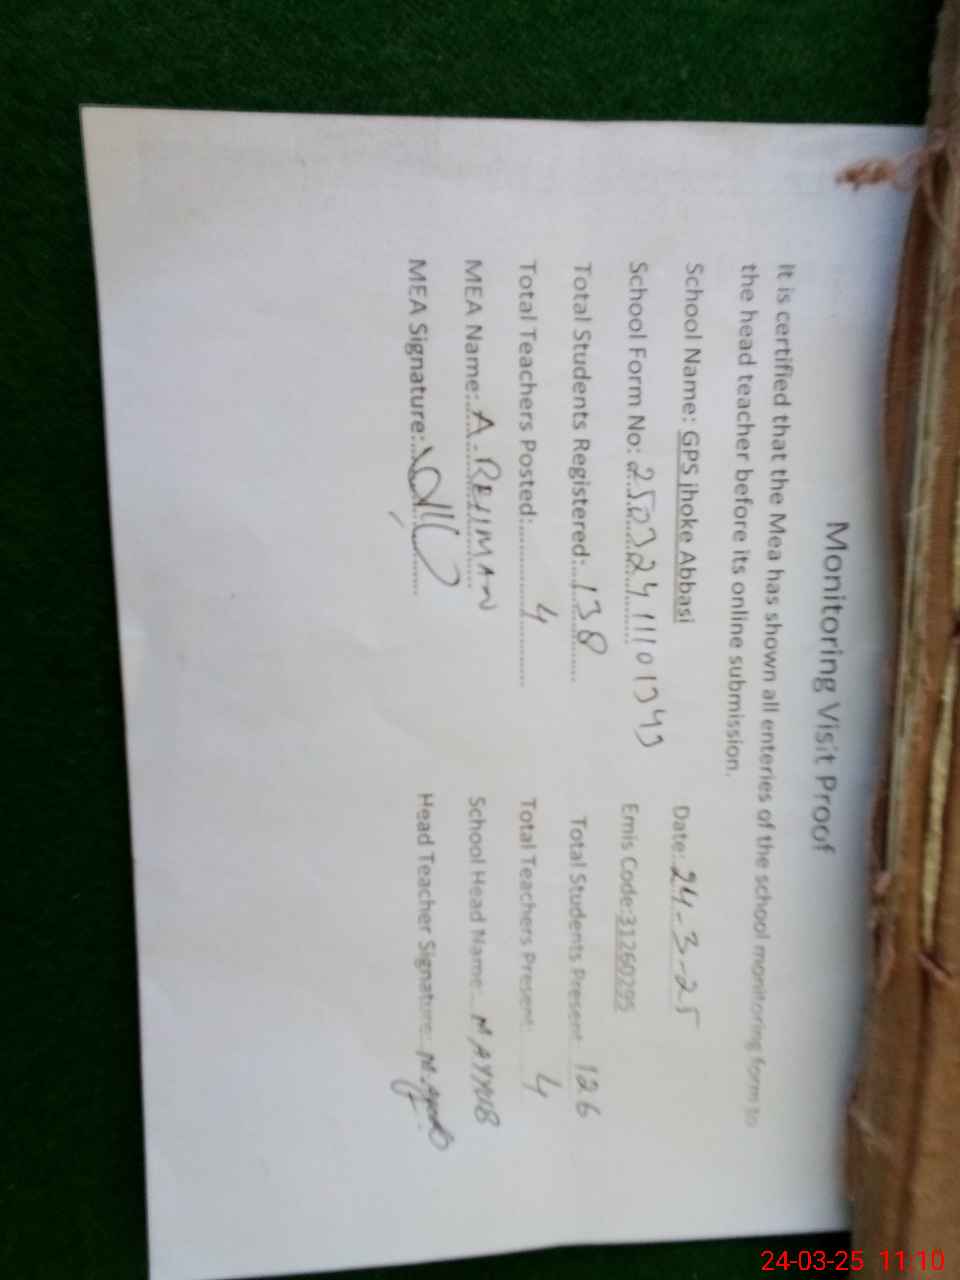 Monitoring Visit Proof
It is certified that the Mea has shown all enteries of the school monitoring form to
the head teacher before its online submission.
School Name: GPS jhoke Abbasi Date: 24-3-25
School Form No: 25032411101343 Emis Code:31260295
Total Students Registered: 138 Total Students Present 126
Total Teachers Posted: 4 Total Teachers Present: 4
MEA Name: A.REHMAN School Head Name: MAYYUB
MEA Signature: Head Teacher Signature: M.Ayub
24-03-25 11:10